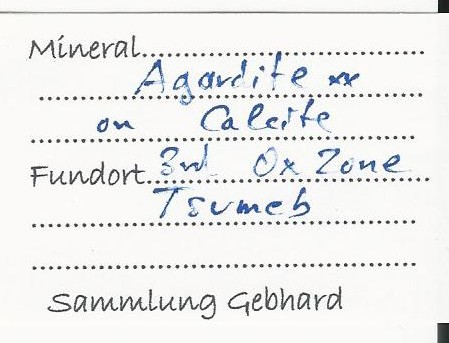 Mineral
Agardite xx
on Calcite
Fundort 3rd Ox Zone
Tsumeb
Sammlung Gebhard